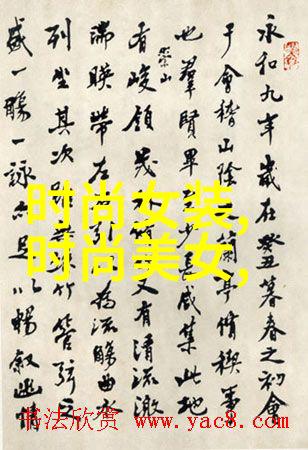 永和九年歲在癸丑暮春之初會
于會稽山陰之蘭亭脩稧事
也羣賢畢至少長咸集此地
崇山
有峻領茂林脩竹又有清流激
湍暎帶左右引以為流觴曲水
列坐其次雖無絲竹管弦之
盛一觴一詠亦足以暢敘幽情
时尚女装,
时尚美女,
书法欣赏 www.yac8.com